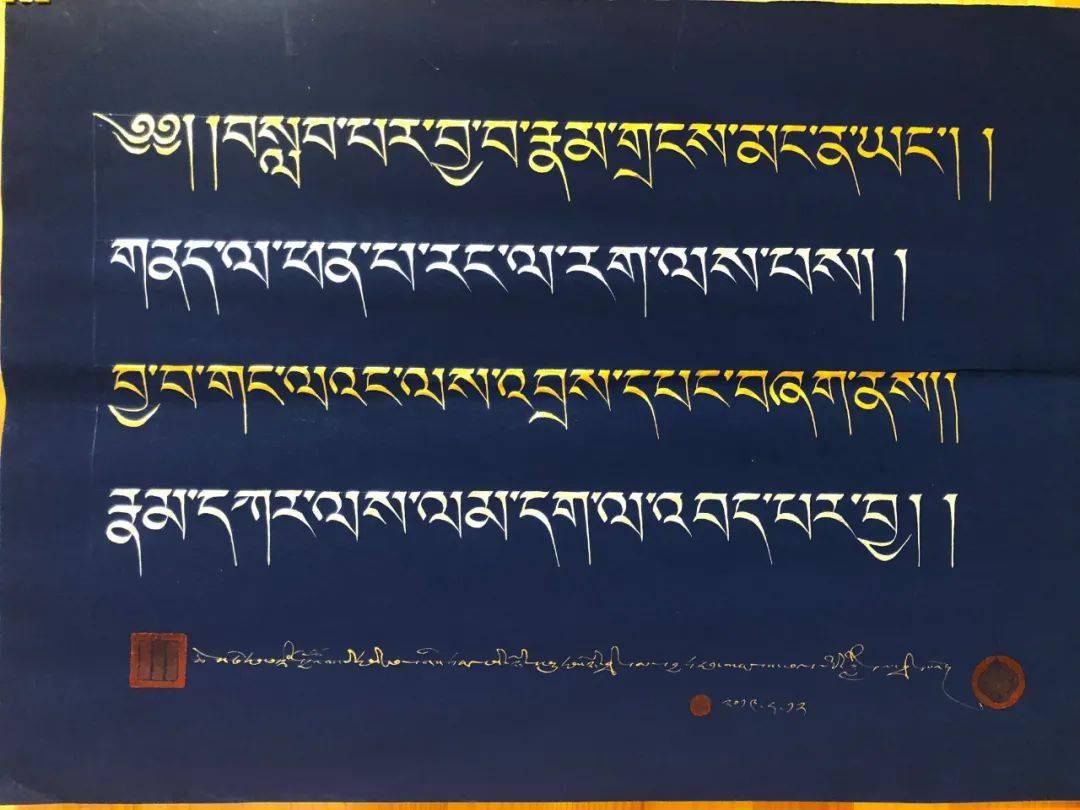 ༄༅། །བསླབ་པར་བྱ་བ་རྣམ་གྲངས་མང་ན་ཡང་། །
གནད་ལ་ཕན་པ་རང་ལ་རག་ལས་པས། །
བྱ་བ་གང་ལའང་ལས་འབྲས་དཔང་བཞག་ནས།།
རྣམ་དཀར་ལས་ལམ་དག་ལ་འབད་པར་བྱ། །